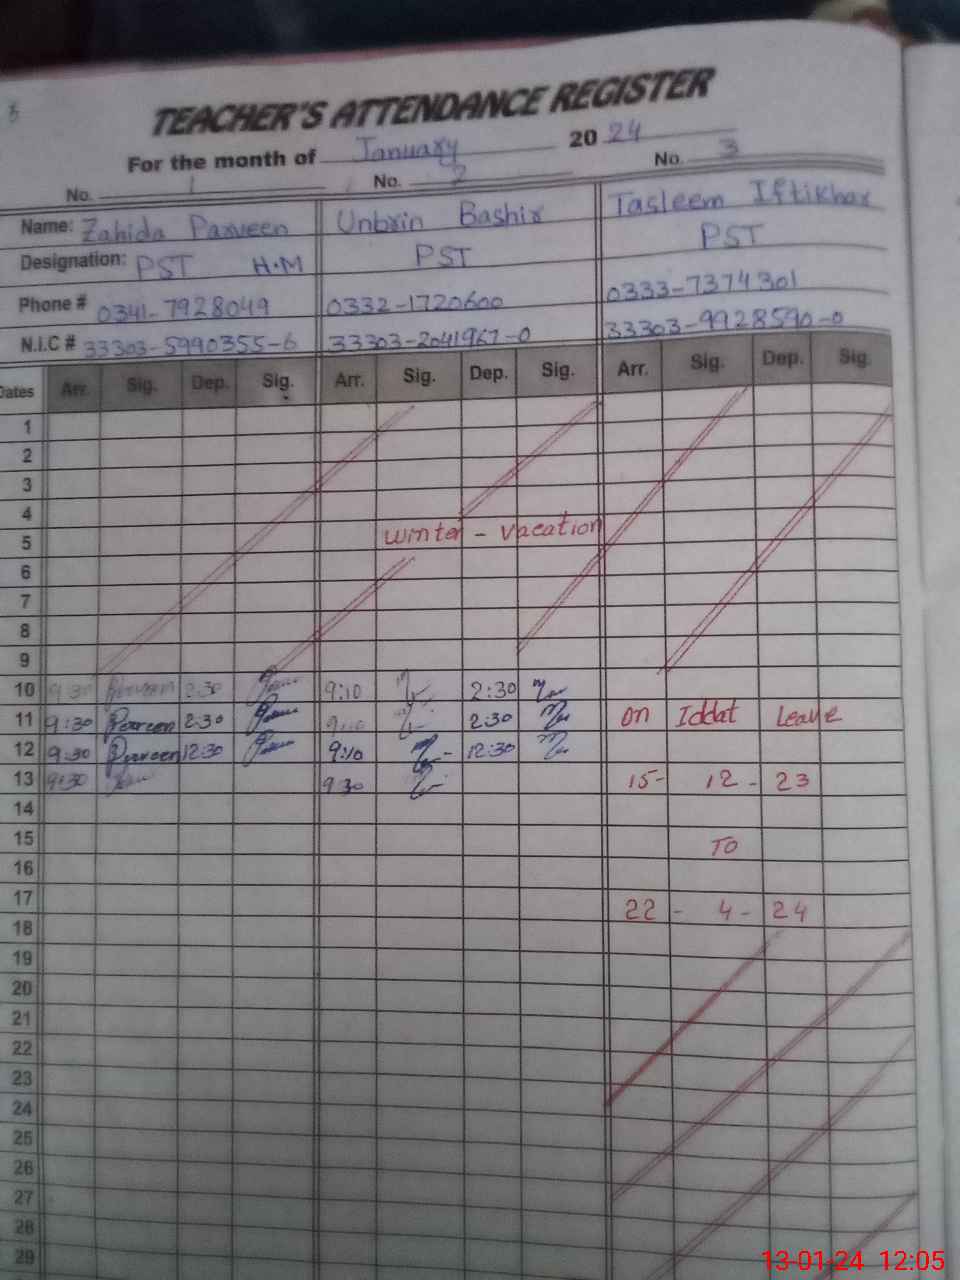 TEACHER'S ATTENDANCE REGISTER
For the month of January 2024
No. 1 No. 2 No. 3
Name: Zahida Parveen Unbrin Bashir Tasleem Iftikhar
Designation: PST H.M PST PST
Phone # 0341-7928049 0332-1720600 0333-7374301
N.I.C # 33303-5990355-6 33303-2041967-0 33303-9928590-0
Dates Arr. Sig. Dep. Sig. Arr. Sig. Dep. Sig. Arr. Sig. Dep. Sig.
1
2
3
4
5 winter - vacation
6
7
8
9
10 9:30 Parveen 2:30 9:10 2:30
11 9:30 Parveen 2:30 9:10 2:30 on Iddat Leave
12 9:30 Parveen 12:30 9:10 12:30
13 9:30 9:30 15- 12 - 23
14
15 TO
16
17 22 - 4 - 24
18
19
20
21
22
23
24
25
26
27
28
29
13-01-24 12:05